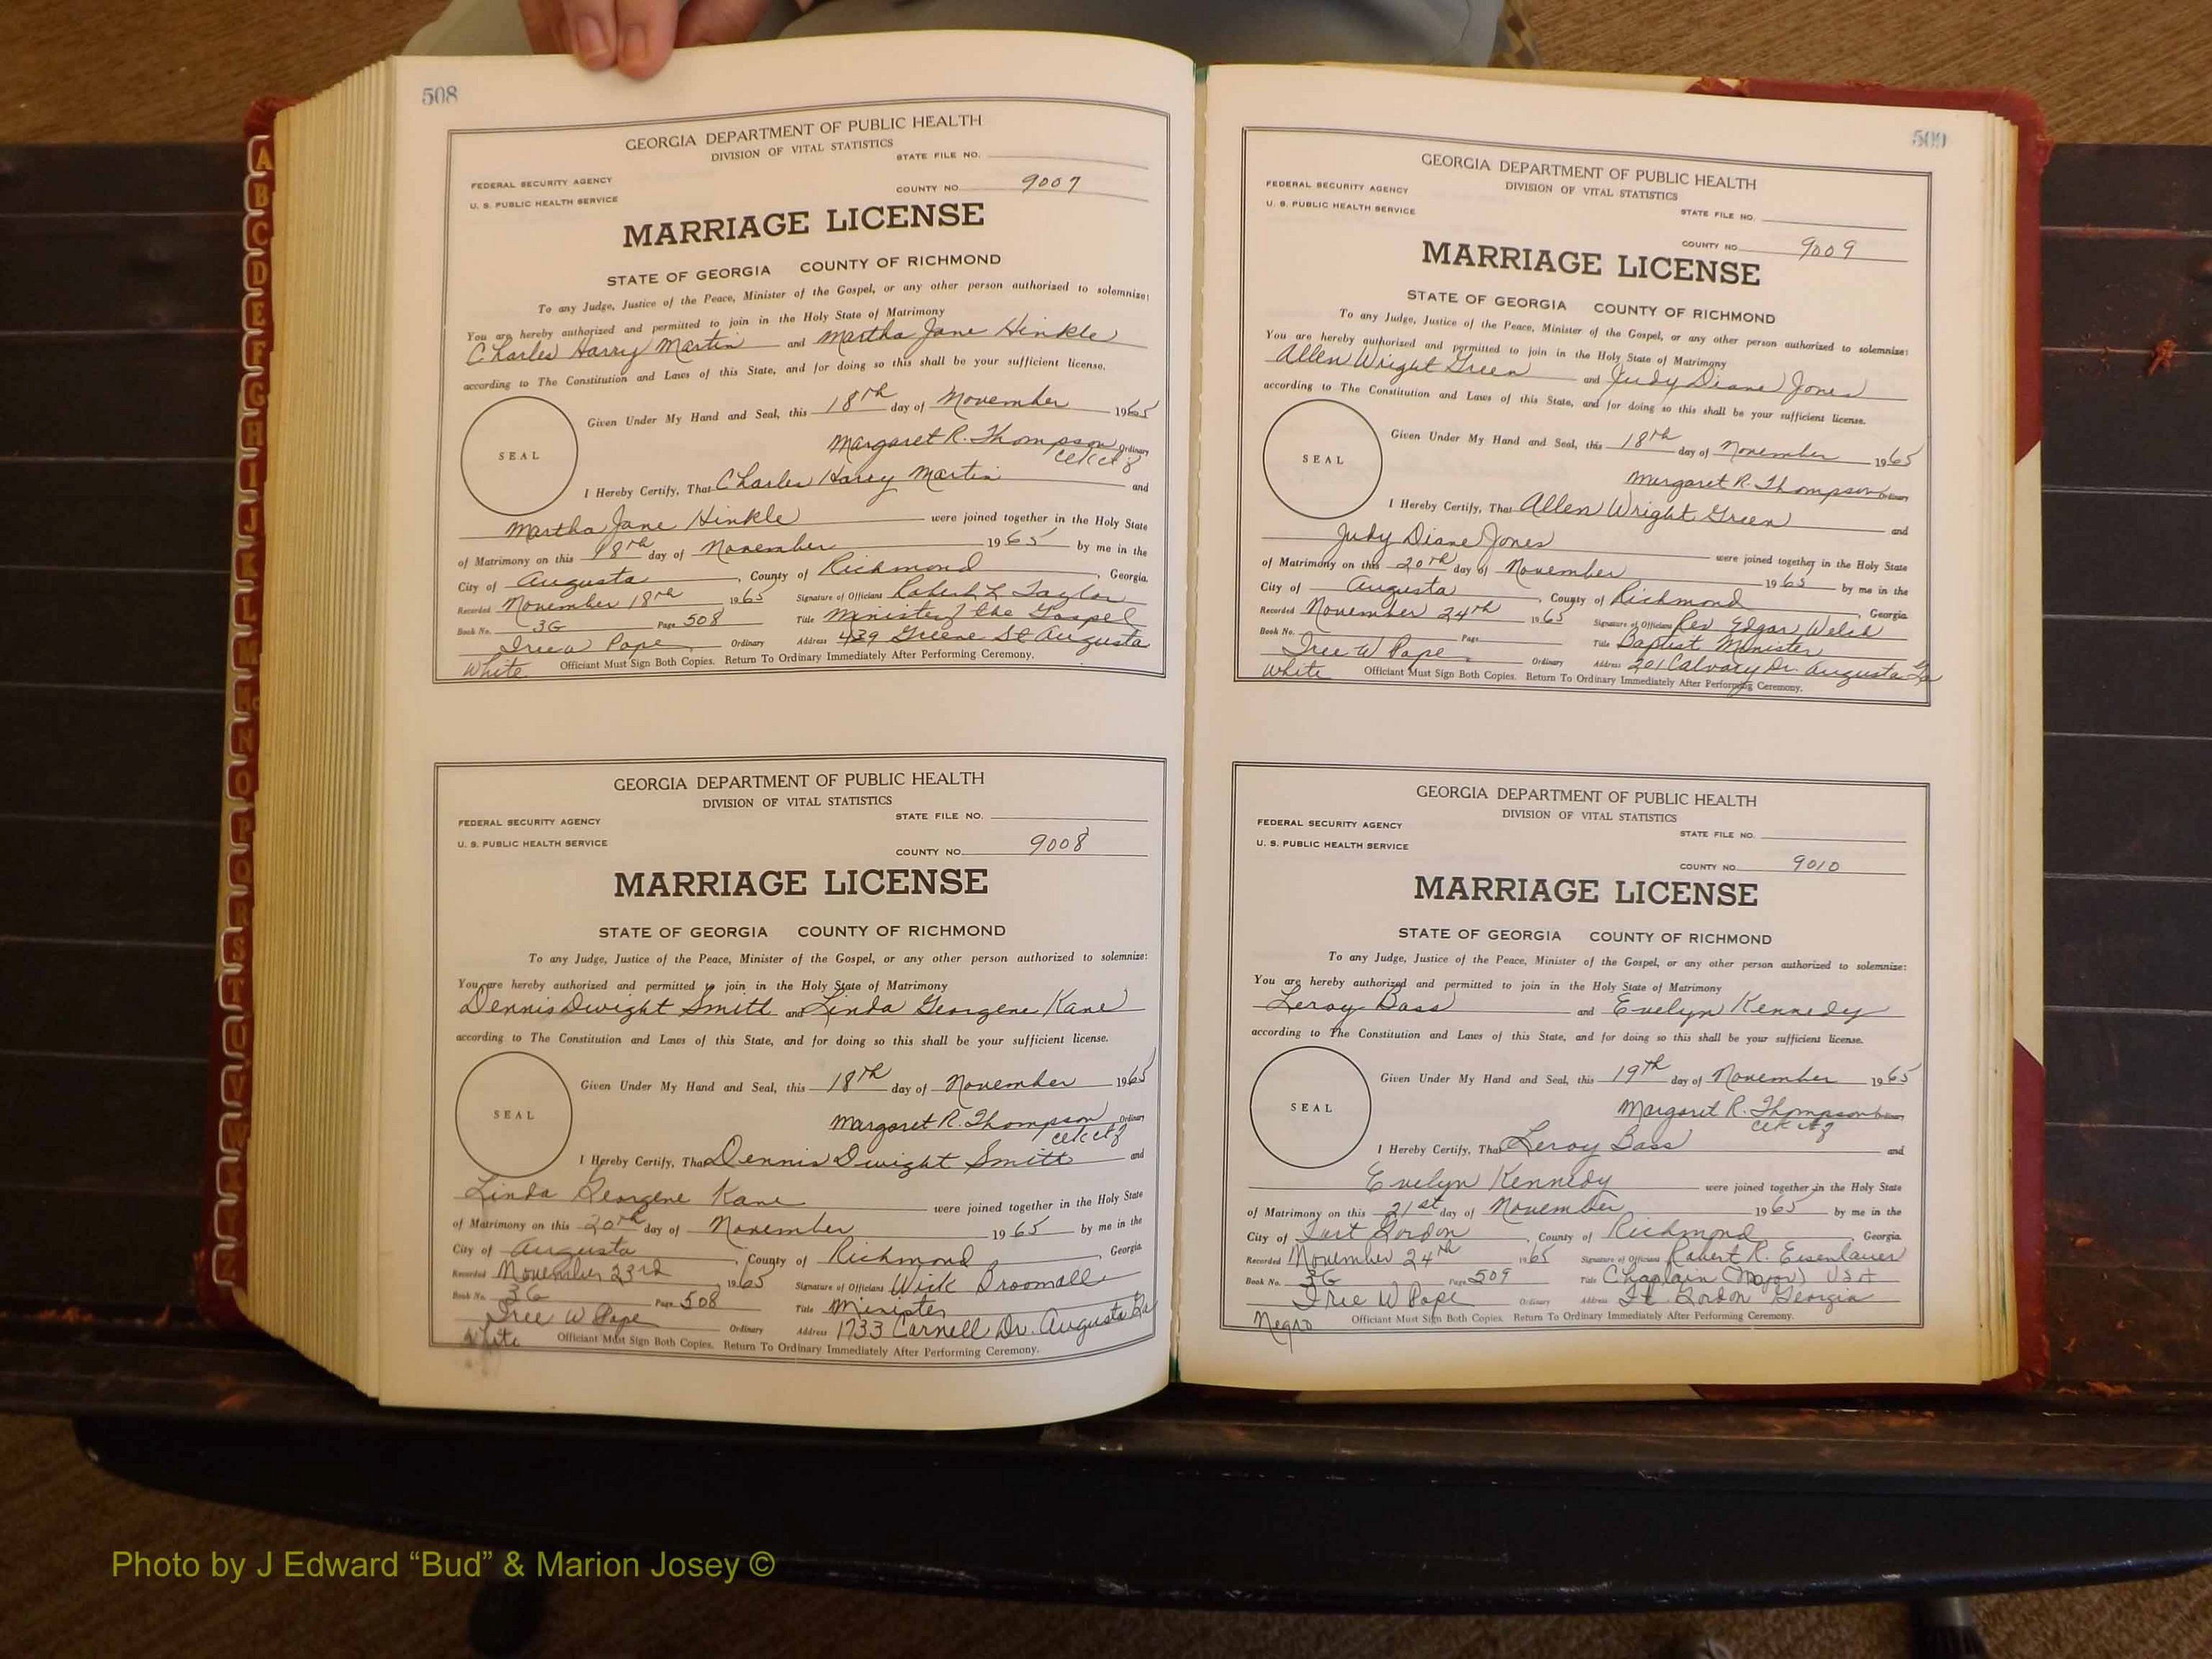 A
B
C
D
E
F
G
H
I
J
K
L
M
Mc
N
O
P
Q
R
S
T
U
V
W
508
GEORGIA DEPARTMENT OF PUBLIC HEALTH
DIVISION OF VITAL STATISTICS
STATE FILE NO.
FEDERAL SECURITY AGENCY
COUNTY NO. 9007
U. S. PUBLIC HEALTH SERVICE
MARRIAGE LICENSE
STATE OF GEORGIA COUNTY OF RICHMOND
To any Judge, Justice of the Peace, Minister of the Gospel, or any other person authorized to solemnize:
You are hereby authorized and permitted to join in the Holy State of Matrimony
Charles Harry Martin and Martha Jane Hinkle
according to The Constitution and Laws of this State, and for doing so this shall be your sufficient license.
Given Under My Hand and Seal, this 18th day of November 1965
SEAL
Margaret R. Thompson Ordinary
I Hereby Certify, That Charles Harry Martin and
Martha Jane Hinkle were joined together in the Holy State
of Matrimony on this 18th day of November 1965 by me in the
City of Augusta, County of Richmond, Georgia.
Recorded November 18th 1965 Signature of Officiant Robert L Taylor
Book No. 3G Page 508 Title Minister of the Gospel
Pope Ordinary Address 439 Greene St Augusta
White Officiant Must Sign Both Copies. Return To Ordinary Immediately After Performing Ceremony.
GEORGIA DEPARTMENT OF PUBLIC HEALTH
DIVISION OF VITAL STATISTICS
STATE FILE NO.
FEDERAL SECURITY AGENCY
U. S. PUBLIC HEALTH SERVICE
COUNTY NO. 9008
MARRIAGE LICENSE
STATE OF GEORGIA COUNTY OF RICHMOND
To any Judge, Justice of the Peace, Minister of the Gospel, or any other person authorized to solemnize:
You are hereby authorized and permitted to join in the Holy State of Matrimony
Dennis Dwight Smith and Linda Georgene Kane
according to The Constitution and Laws of this State, and for doing so this shall be your sufficient license.
Given Under My Hand and Seal, this 18th day of November 1965
SEAL
Margaret R. Thompson Ordinary
I Hereby Certify, That Dennis Dwight Smith and
Linda Georgene Kane were joined together in the Holy State
of Matrimony on this 20th day of November 1965 by me in the
City of Augusta, County of Richmond, Georgia
Recorded November 23rd 1965 Signature of Officiant Wick Broomall
Book No. 3G Page 508 Title Minister
W Pope Ordinary Address 1733 Carnell Dr. Augusta Ga
White Officiant Must Sign Both Copies. Return To Ordinary Immediately After Performing Ceremony.
509
GEORGIA DEPARTMENT OF PUBLIC HEALTH
DIVISION OF VITAL STATISTICS
FEDERAL SECURITY AGENCY
U. S. PUBLIC HEALTH SERVICE
STATE FILE NO.
COUNTY NO. 9009
MARRIAGE LICENSE
STATE OF GEORGIA COUNTY OF RICHMOND
To any Judge, Justice of the Peace, Minister of the Gospel, or any other person authorized to solemnize:
You are hereby authorized and permitted to join in the Holy State of Matrimony
Allen Wright Green and Judy Diane Jones
according to The Constitution and Laws of this State, and for doing so this shall be your sufficient license.
Given Under My Hand and Seal, this 18th day of November 1965
SEAL
Margaret R. Thompson Ordinary
I Hereby Certify, That Allen Wright Green and
Judy Diane Jones were joined together in the Holy State
of Matrimony on this 20th day of November 1965 by me in the
City of Augusta, County of Richmond, Georgia
Recorded November 24th 1965 Signature of Officiant Rev Edgar Welsh
Book No. Page Title Baptist Minister
W Pope Ordinary Address 201 Calvary Dr. Augusta Ga
White Officiant Must Sign Both Copies. Return To Ordinary Immediately After Performing Ceremony.
GEORGIA DEPARTMENT OF PUBLIC HEALTH
DIVISION OF VITAL STATISTICS
FEDERAL SECURITY AGENCY
STATE FILE NO.
U. S. PUBLIC HEALTH SERVICE
COUNTY NO. 9010
MARRIAGE LICENSE
STATE OF GEORGIA COUNTY OF RICHMOND
To any Judge, Justice of the Peace, Minister of the Gospel, or any other person authorized to solemnize:
You are hereby authorized and permitted to join in the Holy State of Matrimony
Leroy Bass and Evelyn Kennedy
according to The Constitution and Laws of this State, and for doing so this shall be your sufficient license.
Given Under My Hand and Seal, this 19th day of November 1965
SEAL
Margaret R. Thompson Ordinary
I Hereby Certify, That Leroy Bass and
Evelyn Kennedy were joined together in the Holy State
of Matrimony on this 21st day of November 1965 by me in the
City of Fort Gordon, County of Richmond, Georgia
Recorded November 24th 1965 Signature of Officiant Robert R. Eisenlauer
Book No. 3G Page 509 Title Chaplain (Major) USA
W Pope Ordinary Address Ft. Gordon Georgia
Negro Officiant Must Sign Both Copies. Return To Ordinary Immediately After Performing Ceremony.
Photo by J Edward “Bud” & Marion Josey ©